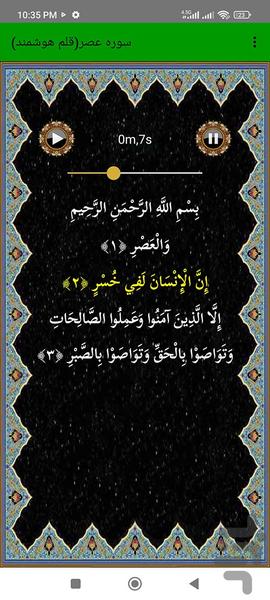 10:35 PM
4.5G
123
سوره عصر(قلم هوشمند)
0m,7s
بِسْمِ اللَّهِ الرَّحْمَنِ الرَّحِيمِ
وَالْعَصْرِ ﴿١﴾
إِنَّ الْإِنْسَانَ لَفِي خُسْرٍ ﴿٢﴾
إِلَّا الَّذِينَ آمَنُوا وَعَمِلُوا الصَّالِحَاتِ
وَتَوَاصَوْا بِالْحَقِّ وَتَوَاصَوْا بِالصَّبْرِ ﴿٣﴾